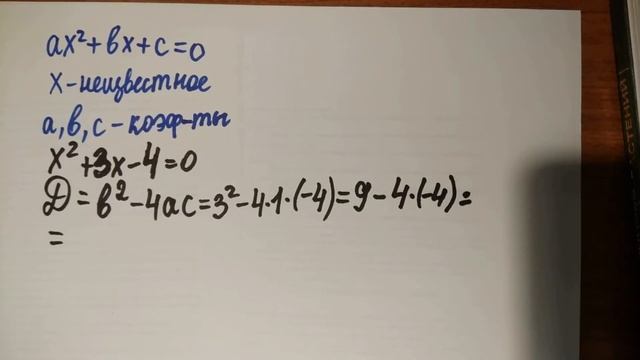 ax²+bx+c=0
x-неизвестное
a,b,c-коэф-ты
x²+3x-4=0
D=b²-4ac=3²-4·1·(-4)=9-4·(-4)=
=